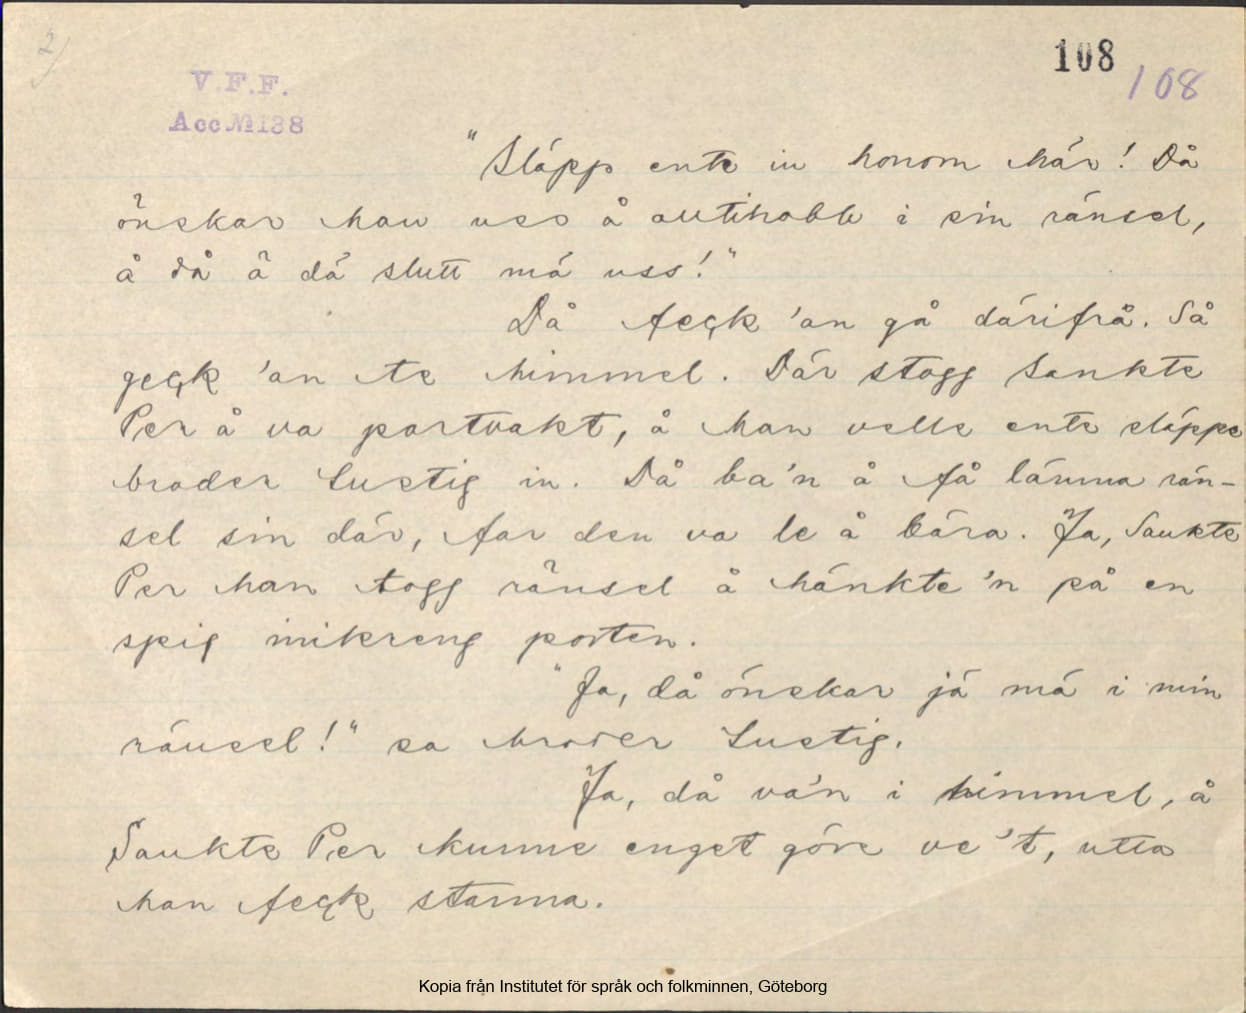 2)
108
108
V.F.F.
Acc № 138
"Släpp ente in honom här! Då
önskar han uss å alltihobb i sin ränsel,
å då ä dä slutt mä uss!"
Då feçk 'an gå därifrå. Så
geçk 'an te himmel. Där stogg Sankte
Per å va portvakt, å han velle ente släppe
broder Lustig in. Då ba'n å få lämna rän-
sel sin där, for den va le å bära. Ja, Sankte
Per han togg ränsel å hänkte'n på en
spig inikreng porten.
"Ja, då önskar jä mä i min
ränsel!" sa broder Lustig.
Ja, då va'n i himmel, å
Sankte Per kunne enget göre ve't, utta
han feçk stanna.
Kopia från Institutet för språk och folkminnen, Göteborg